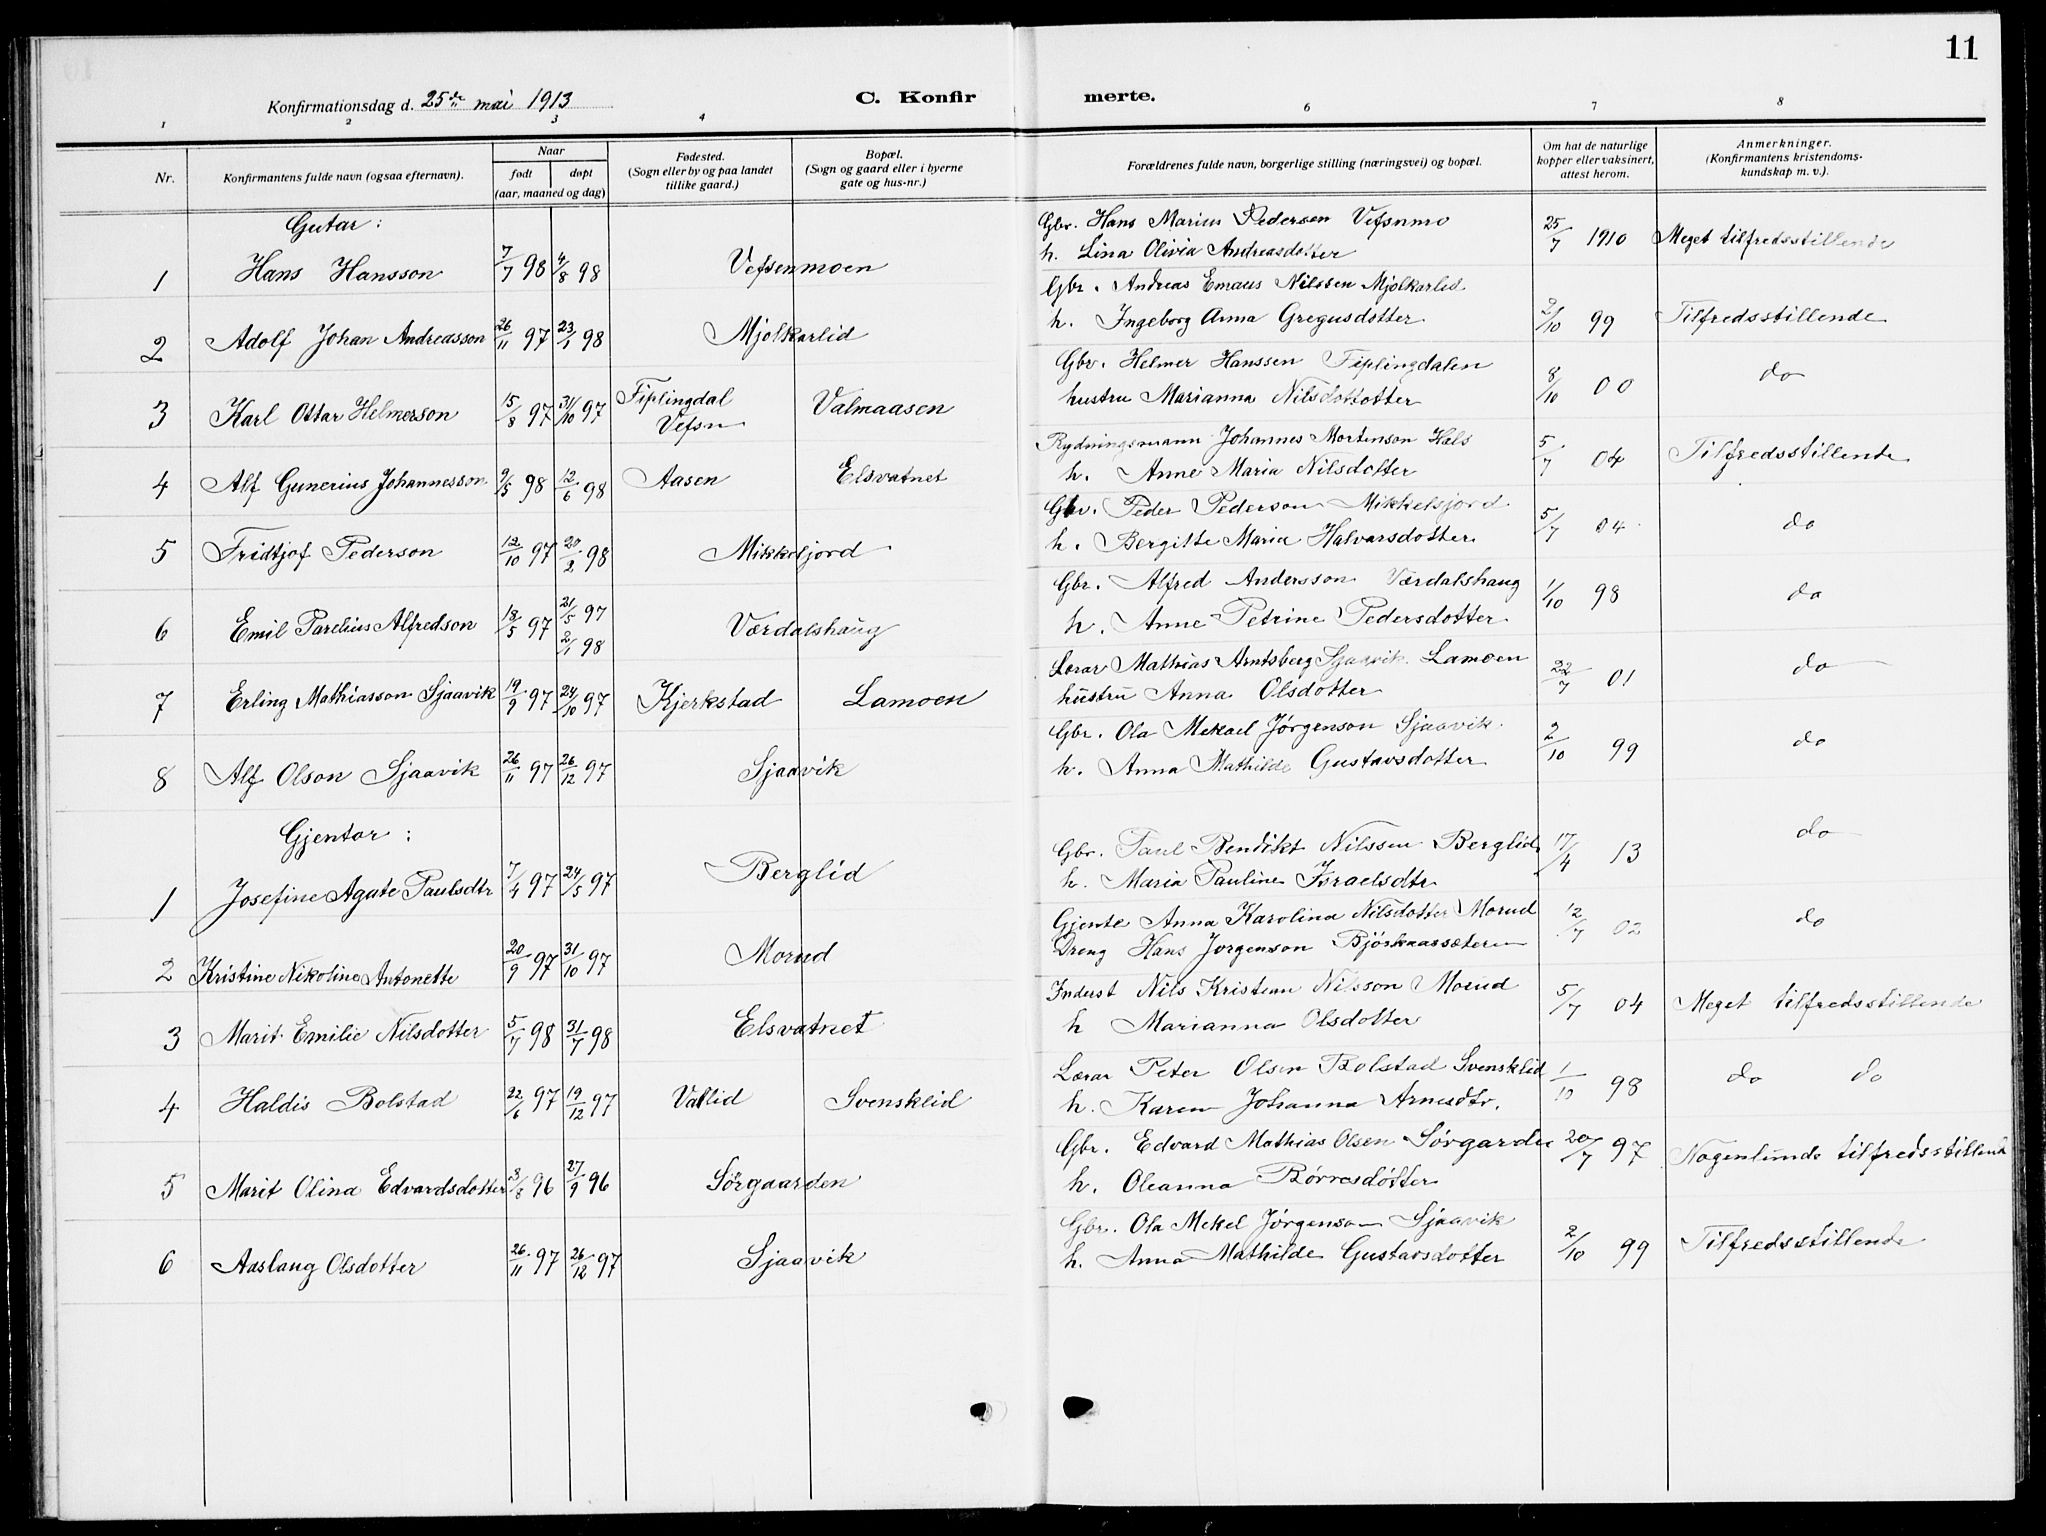 11
Konfirmationsdag d. 25de mai 1913
C. Konfirmerte.
1 2 3 4 6 7 8
Nr.
Konfirmantens fulde navn (ogsaa efternavn).
Naar
født døpt
(aar, maaned og dag)
Fødested.
(Sogn eller by og paa landet
tillike gaard.)
Bopæl.
(Sogn og gaard eller i byerne
gate og hus-nr.)
Forældrenes fulde navn, borgerlige stilling (næringsvei) og bopæl.
Om hat de naturlige
kopper eller vaksinert,
attest herom.
Anmerkninger.
(Konfirmantens kristendoms-
kundskap m. v.).
Gutar:
1 Hans Hansson 7/7 98 4/8 98 Vefsenmoen Gbr. Hans Marius Pedersen Vefsnmo 25/7 1910 Meget tilfredsstillende
h. Lina Olivia Andreasdotter
2 Adolf Johan Andreasson 26/11 97 23/1 98 Mjolkarlid Gbr. Andreas Emaus Nilssen Mjolkarlid 2/10 99 Tilfredsstillende
h. Ingeborg Anna Gregusdotter
3 Karl Ottar Helmerson 15/8 97 31/10 97 Fiplingdal Vefsn Valmaasen Gbr. Helmer Hanssen Fiplingdalen 8/10 00 do
hustru Marianna Nilsdottotter
4 Alf Gunerius Johannesson 9/5 98 12/6 98 Aasen Elsvatnet Rydningsmann Johannes Mortenson Hals 5/7 04 Tilfredsstillende
h. Anne Maria Nilsdotter
5 Fridtjof Pederson 12/10 97 20/2 98 Mikkeljord Gbr. Peder Pederson Mikkelsjord 5/7 04 do
h. Bergitte Maria Halvarsdotter
6 Emil Parelius Alfredson 18/5 97 21/5 97 2/1 98 Værdalshaug Gbr. Alfred Andersson Værdalshaug 1/10 98 do
h. Anne Petrine Pedersdotter
7 Erling Mathiasson Sjaavik 19/9 97 24/10 97 Kjerkstad Lamoen Lærar Mathias Arntsberg Sjaavik Lamoen 22/7 01 do
hustru Anna Olsdotter
8 Alf Olson Sjaavik 26/11 97 26/12 97 Sjaavik Gbr. Ola Mekael Jørgenson Sjaavik 2/10 99 do
h. Anna Mathilde Gustavsdotter
Gjentor:
1 Josefine Agate Paulsdtr 7/4 97 24/5 97 Berglid Gbr. Paul Bendikt Nilssen Berglid 17/4 13 do
h. Maria Pauline Israelsdtr
2 Kristine Nikoline Antonette 20/9 97 31/10 97 Morud Gjente Anna Karolina Nilsdotter Morud 12/7 02 do
Dreng Hans Jorgenson Bjørkaassæteren
3 Marit Emilie Nilsdotter 5/7 98 31/7 98 Elsvatnet Inderst Nils Kristian Nilsson Morud 5/7 04 Meget tilfredsstillende
h Marianna Olsdotter
4 Haldis Bolstad 22/6 97 19/12 97 Vallid Svensklid Lærar Peter Olsen Bolstad Svensklid 1/10 98 do do
h. Karen Johanna Arnesdtr.
5 Marit Olina Edvardsdotter 3/8 96 27/9 96 Sörgaarden Gbr. Edvard Mathias Olsen Sörgarden 20/7 97 Nogenlunde tilfredsstillende
h. Oleanna Børresdotter
6 Aaslaug Olsdotter 26/11 97 26/12 97 Sjaavik Gbr. Ola Mekel Jörgenson Sjaavik 2/10 99 Tilfredsstillende
h. Anna Mathilde Gustavsdotter